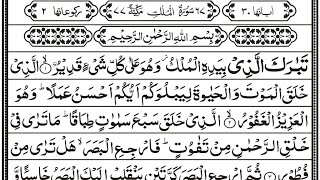 اٰیاتها ۳۰ ۶۷ سُوْرَةُ الْمُلْكِ مَكِّيَّةٌ ۷۷ رکوعاتها ۲
بِسْمِ اللّٰهِ الرَّحْمٰنِ الرَّحِيْمِ
تَبٰرَكَ الَّذِيْ بِيَدِهِ الْمُلْكُ ۫ وَهُوَ عَلٰى كُلِّ شَيْءٍ قَدِيْرُ ۙ﴿۱﴾ الَّذِيْ
خَلَقَ الْمَوْتَ وَالْحَيٰوةَ لِيَبْلُوَكُمْ اَيُّكُمْ اَحْسَنُ عَمَلًا ؕ وَهُوَ
الْعَزِيْزُ الْغَفُوْرُ ۙ﴿۲﴾ الَّذِيْ خَلَقَ سَبْعَ سَمٰوٰتٍ طِبَاقًا ؕ مَا تَرٰى فِيْ
خَلْقِ الرَّحْمٰنِ مِنْ تَفٰوُتٍ ؕ فَارْجِعِ الْبَصَرَ ۙ هَلْ تَرٰى مِنْ
فُطُوْرٍ ﴿۳﴾ ثُمَّ ارْجِعِ الْبَصَرَ كَرَّتَيْنِ يَنْقَلِبْ اِلَيْكَ الْبَصَرُ خَاسِئًا وَّ